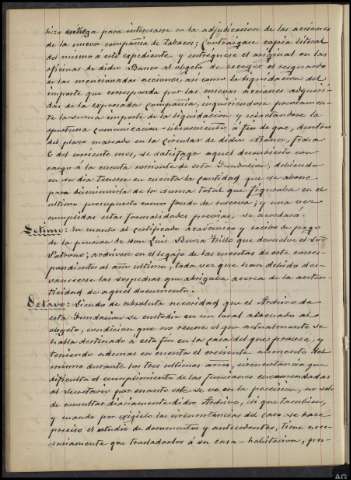 hizo entrega para interesarse en la adjudicacion de las acciones
de la nueva compañia de Tabacos; Contráigase copia literal
del mismo á este espediente y entréguese el original en las
oficinas de dicho Banco al objeto de recoger el resguardo
de las mencionadas acciones, asi como la liquidacion del
importe que corresponda por las nuevas acciones adquiri-
das de la espresada Compañia,
importe de la liquidacion y
oportuna comunicacion libramiento á fin de que, dentro
del plazo marcado en la circular de dicho Banco, fecha
6 del corriente mes, se satisfaga aquel documento con
cargo á la cuenta corriente de esta Fundacion; debiendo
en su dia tenerse en cuenta la cantidad que se abone
para disminuirla de la suma total que figuraba en el
último presupuesto como fondo de reserva; y una vez
cumplidas estas formalidades provias, se acordará.
Setimo: En cuanto al certificado de pago
de la pension de Don Luis que devuelve el Sor
Patrono; archívese en el legajo de las cuentas de este corres-
pondientes al año último, toda vez que han debido des-
vanecerse las sospechas que abrigaba acerca de la auten-
ticidad de aquel documento.
Octavo: Siendo de absoluta necesidad que el Archivo de
esta Fundacion se custodie en un local adecuado al
objeto, condicion que no reune el que actualmente se
halla destinado á este fin en la casa del que provee, y
teniendo ademas en cuenta el creciente aumento del
mismo durante los tres últimos años, circunstancia que
dificulta el cumplimiento de las funciones encomendadas
al Secretario por cuanto este se vé en la precision, no solo
de consultar diariamente dicho Archivo, si que tambien,
y cuando por exigirlo las circunstancias del caso se hace
preciso el estudio de documentos y antecedentes, tiene nece-
sariamente que trasladarlos á su casa-habitacion, pro-